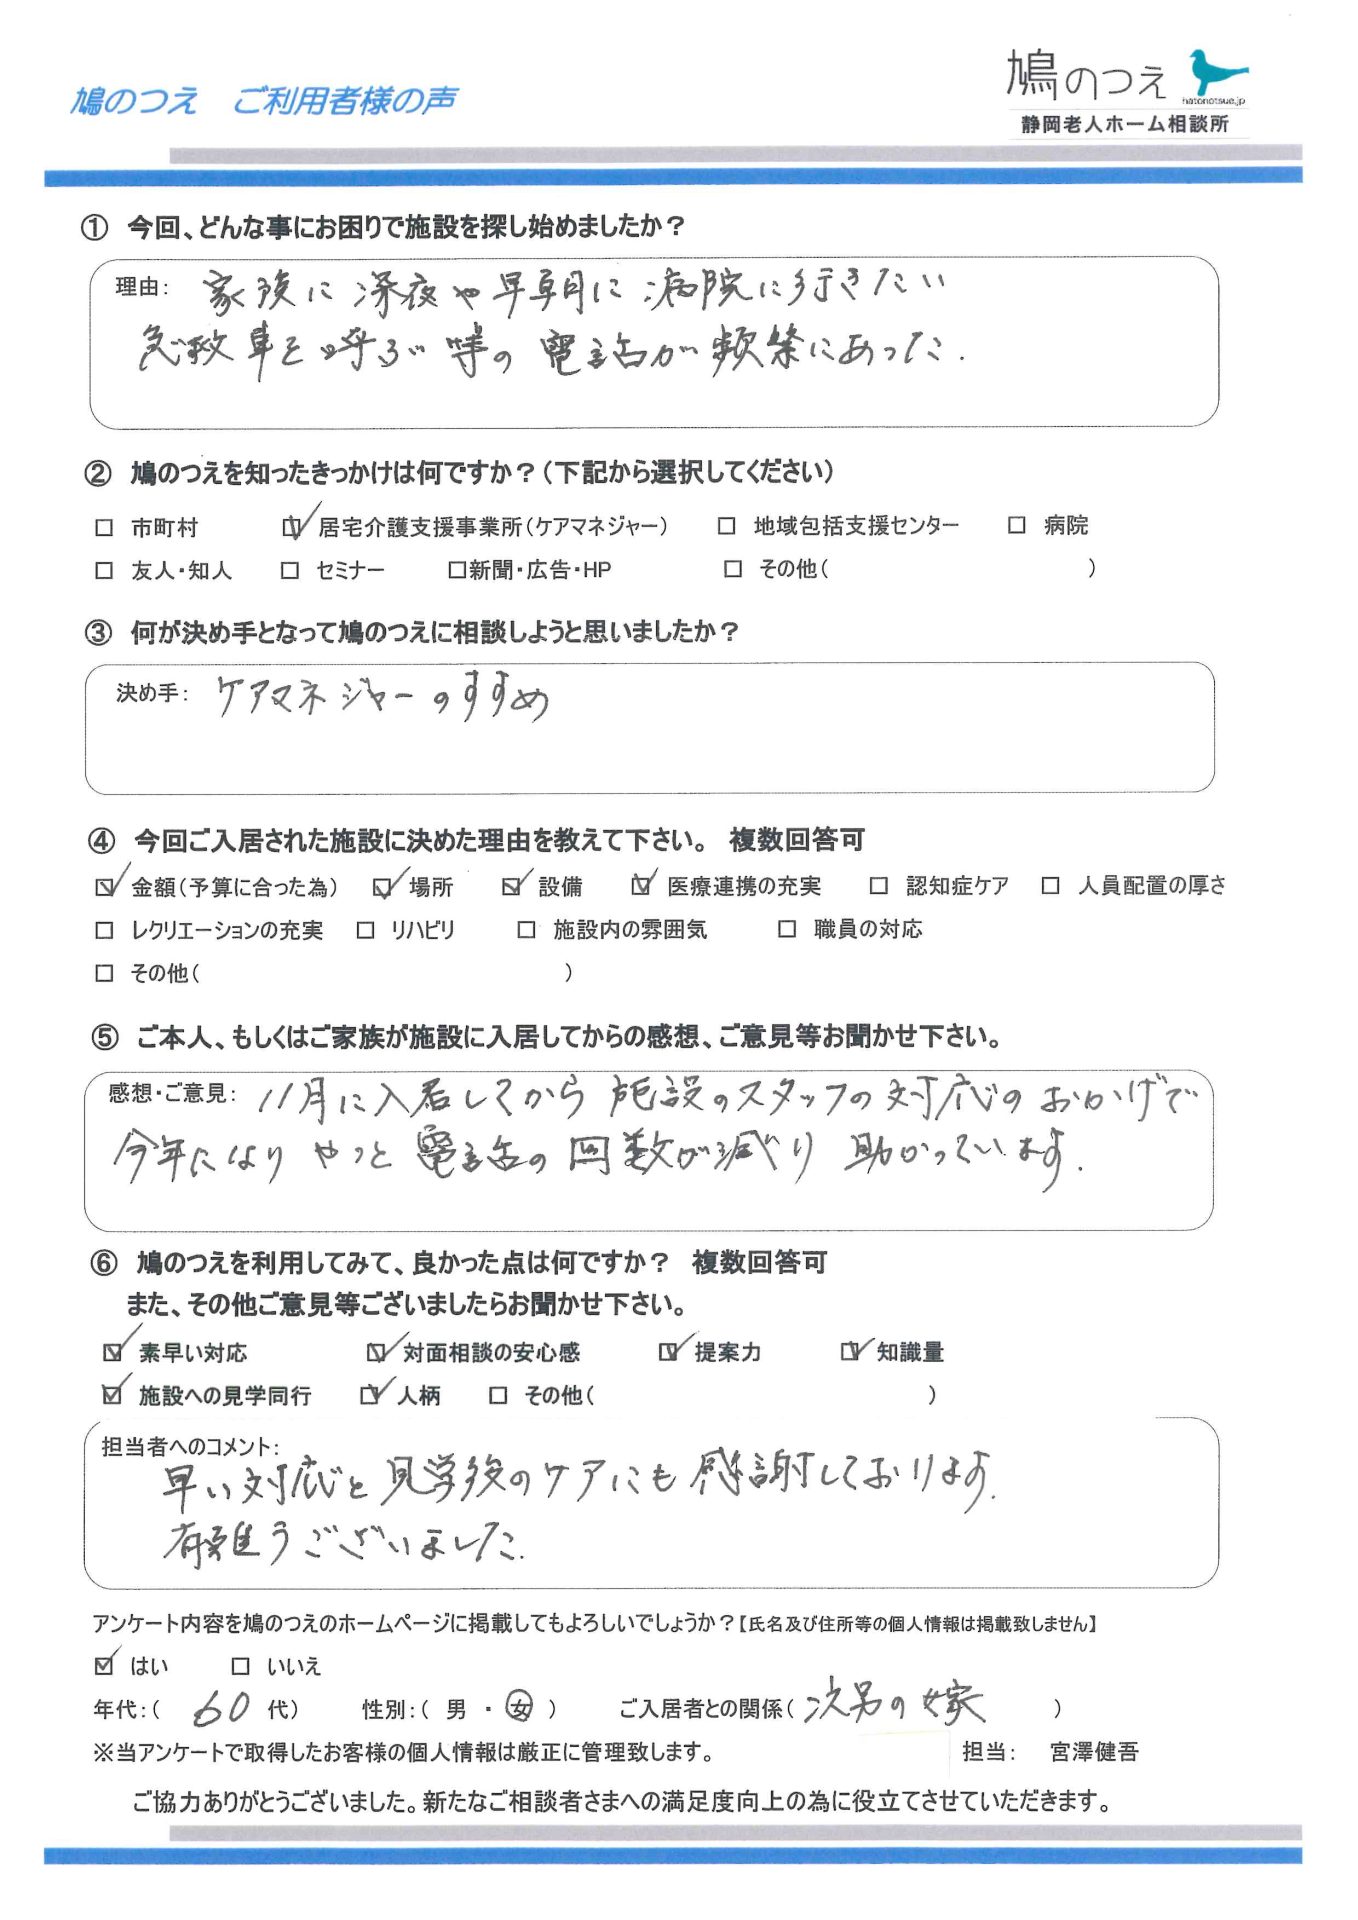 鳩のつえ　ご利用者様の声
鳩のつえ
hatonotsue.jp
静岡老人ホーム相談所
① 今回、どんな事にお困りで施設を探し始めましたか？
理由： 家族に深夜や早朝に病院に行きたい
急救車を呼ぶ等の電話が頻繁にあった.
② 鳩のつえを知ったきっかけは何ですか？（下記から選択してください）
□ 市町村　☑ 居宅介護支援事業所（ケアマネジャー）　□ 地域包括支援センター　□ 病院
□ 友人・知人　□ セミナー　□新聞・広告・HP　□ その他（　）
③ 何が決め手となって鳩のつえに相談しようと思いましたか？
決め手： ケアマネジャーのすすめ
④ 今回ご入居された施設に決めた理由を教えて下さい。　複数回答可
☑ 金額（予算に合った為）　☑ 場所　☑ 設備　☑ 医療連携の充実　□ 認知症ケア　□ 人員配置の厚さ
□ レクリエーションの充実　□ リハビリ　□ 施設内の雰囲気　□ 職員の対応
□ その他（　）
⑤ ご本人、もしくはご家族が施設に入居してからの感想、ご意見等お聞かせ下さい。
感想・ご意見： 11月に入居してから 施設のスタッフの対応のおかげで
今年になり やっと 電話の回数が減り 助かっています.
⑥ 鳩のつえを利用してみて、良かった点は何ですか？　複数回答可
また、その他ご意見等ございましたらお聞かせ下さい。
☑ 素早い対応　☑ 対面相談の安心感　☑ 提案力　☑ 知識量
☑ 施設への見学同行　☑ 人柄　□ その他（　）
担当者へのコメント：
早い対応と見学後のケアにも感謝しております.
有難うございました.
アンケート内容を鳩のつえのホームページに掲載してもよろしいでしょうか？【氏名及び住所等の個人情報は掲載致しません】
☑ はい　□ いいえ
年代：（ 60 代）　性別：（ 男 ・ 女 ）　ご入居者との関係（ 次男の嫁 ）
※当アンケートで取得したお客様の個人情報は厳正に管理致します。　担当：　宮澤健吾
ご協力ありがとうございました。新たなご相談者さまへの満足度向上の為に役立てさせていただきます。